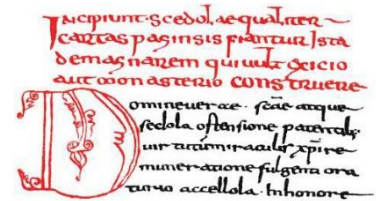 INCIPIUNT·SCEDOL, aequaliter
cartas paginsis fiantur Ista
demagnarem quivult gxicio
aut monasterio construere
Domineverace. scae atque
seclola ostensione patentali,
virtutum miraculis xpire
muneratione fulgenti ora
turio accellola. Inhonore